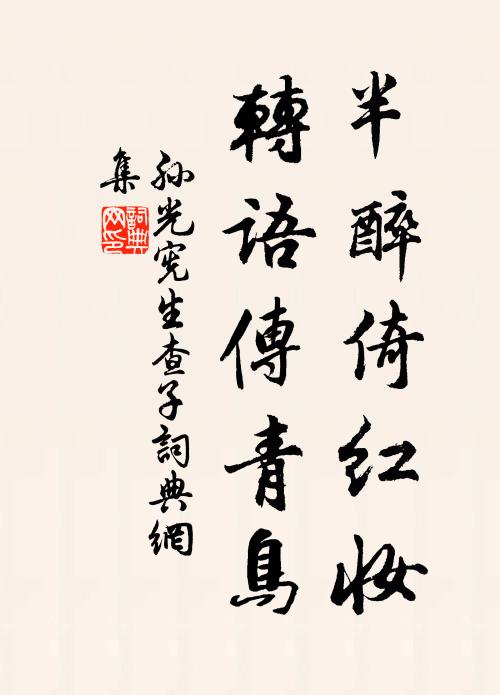 半醉倚红妆
轉語傳青鳥
孙光宪生查子詞典網
集
詞典
网印